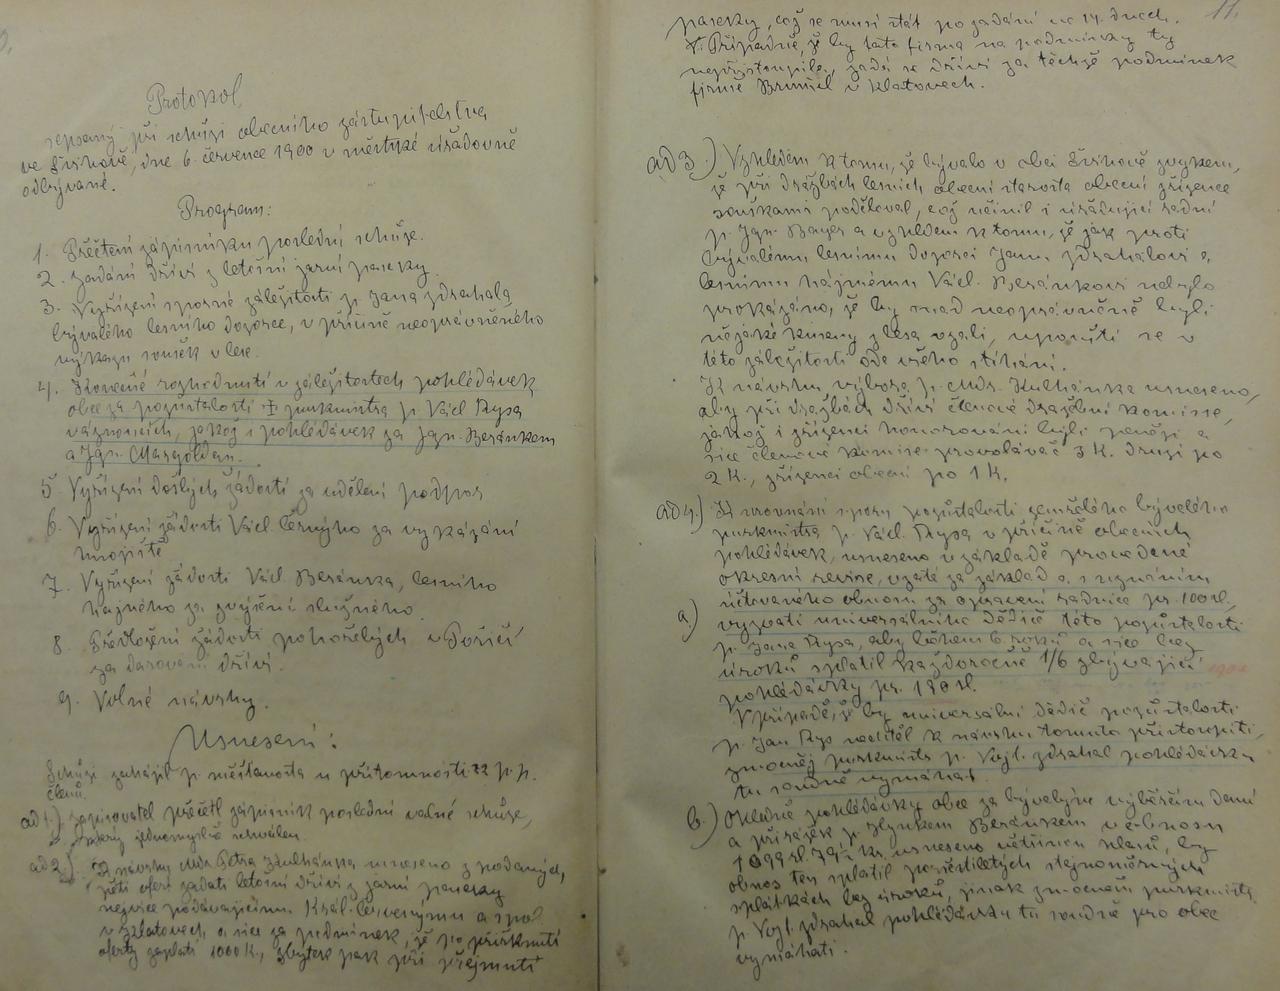 Protokol
sepsaný při schůzi obecního zastupitelstva
ve Švihově, dne 6. července 1900 v městské úřadovně
odbývané.
Program:
1. Přečtení zápisníku poslední schůze.
2. Zadání dříví z letošní jarní paseky.
3. Vyřízení sporné záležitosti p. Jana Zdrahala
bývalého lesního dozorce, v příčině neoprávněného
výkazu soušek v lese.
4. Konečné rozhodnutí v záležitostech pohledávek
obce za pozůstalostí purkmistra p. Václ. Rysa
váznoucích, jakož i pohledávek za Ign. Beránkem
a Ign. Margoldem.
5. Vyřízení došlých žádostí za udělení podpor
6. Vyřízení žádosti Václ. Černýho za vykázání
hnojiště
7. Vyřízení žádosti Václ. Beránka, lesního
hajného za zvýšení služného.
8. Předložení žádosti pohořelých v Poříčí
za darování dříví.
9. Volné návrhy.
Usnesení:
Schůzi zahájil p. měšťanosta u přítomnosti 22 p. p.
členů.
ad 1.) zapisovatel přečetl zápisník poslední valné schůze,
který jednomyslně schválen.
ad 2.) K návrhu Mdr. Petra Kulhánka usneseno z podaných
pěti ofert zadati letošní dříví z jarní paseky
nejvíce podávajícímu a spol
v Klatovech a sice za podmínek, že po přiřknutí
oferty zaplatí 1000 K., zbytek pak při přejmutí
11.
paseky, což se musí stát po zadání ve 14. dnech.
V Případně, že by tato firma na podmínky ty
nepřistoupila, zadá se dříví za těchže podmínek
firmě v Klatovech.
ad 3.) Vzhledem k tomu, že bývalo v obci Švihově zvykem,
že při dražbách lesních obecní starosta obecní zřízence
souškami poděloval, což učinil i úřadující radní
p. Ign. Bayer a vzhledem k tomu, že jak proti
bývalému lesnímu dozorci Janu Zdrahalovi a
lesnímu hájnému Václ. Beránkovi nebylo
prokázáno, že by snad neoprávněně byli
nějaké kmeny z lesa vzali, upouští se v
této záležitosti ode všeho stíhání.
K návrhu výboru p. Mdr. Kulhánka usneseno,
aby při dražbách dříví členové dražební komise,
jakož i zřízenci honorováni byli penězi a
sice členové komise provolávač 3 K. druzí po
2 K., zřízenci obecní po 1 K.
ad 4.) K urovnání sporu pozůstalosti zemřelého bývalého
purkmistra p. Václ. Rysa v příčině obecních
pohledávek, usneseno v základě provedené
okresní revise, vzaté za základ a s uznáním
účtovaného obnosu za spravení radnice pr. 100 zl.,
a.) vyzvati universálního dědice této pozůstalosti
p. Jana Rysa, aby během 6 roků a sice bez
úroků splatil každoročně 1/6 zbývající
pohledávky pr. 180 zl.
V případě, že by universální dědic pozůstalosti
p. Jan Rys nechtěl k návrhu tomuto přistoupiti,
zmocněj purkmistr p. Vojt. Zdrahal pohledávku
tu soudně vymáhat.
b.) Ohledně pohledávky obce za bývalým výběrčím daní
a přirážek p. Beránkem v obnosu
usneseno většinou hlasů, by
obnos ten splatil stejnoměrných
splátkách bez úroků, jinak zmocněn purkmistr
p. Vojt. Zdrahal pohledávku tu soudně pro obec
vymáhati.